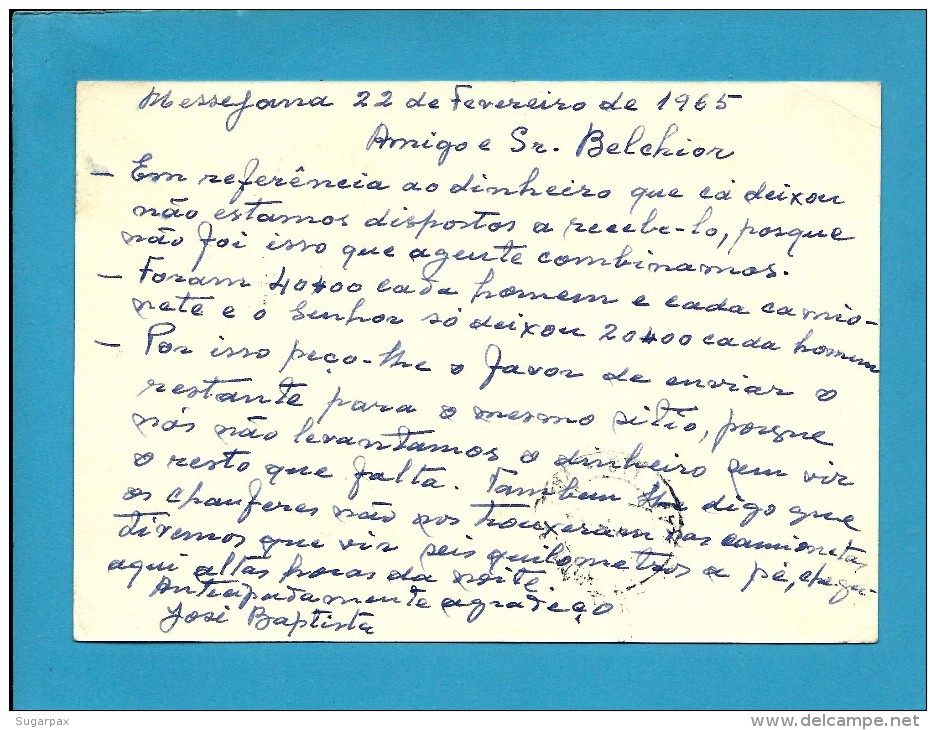 Messejana 22 de Fevereiro de 1965
Amigo e Sr. Belchior
- Em referência ao dinheiro que cá deixou
não estamos dispostos a recebe-lo, porque
não foi isso que agente combinamos.
- Foram 40$00 cada homem e cada camio-
nete e o Senhor só deixou 20$00 cada homem
- Por isso peço-lhe o favor de enviar o
restante para o mesmo sitio, porque
nós não levantamos o dinheiro sem vir
o resto que falta. Tambem lhe digo que
os chauferes não nos trouxeram nas camionetas
tivemos que vir seis quilometros a pé, chegá-
aqui altas horas da noite
Antecipadamente agradeço
José Baptista
Sugarpax
www.delcampe.net